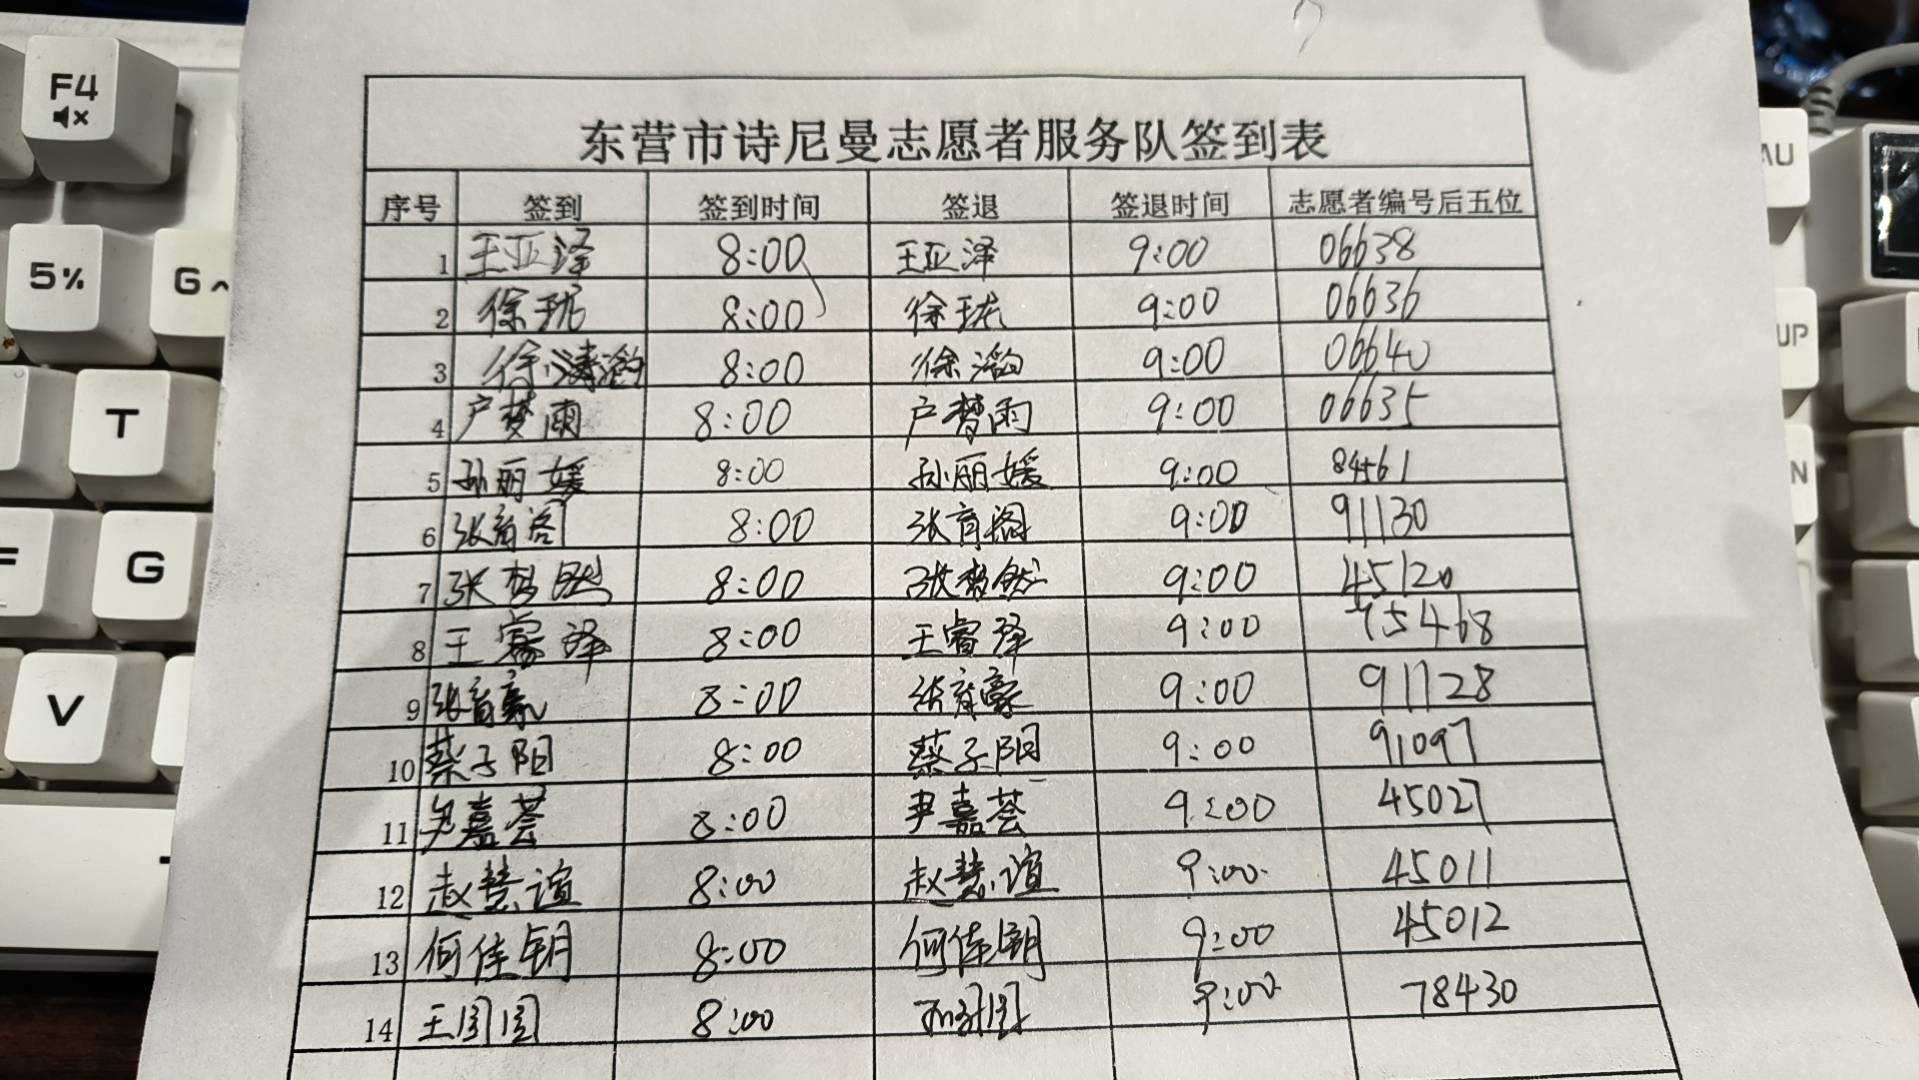 F4
5%
G
T
F
G
V
AU
UP
N
东营市诗尼曼志愿者服务队签到表
序号 签到 签到时间 签退 签退时间 志愿者编号后五位
1 王亚泽 8:00 王亚泽 9:00 06638
2 徐珑 8:00 徐珑 9:00 06636
3 徐 8:00 徐 9:00 06640
4 卢梦雨 8:00 卢梦雨 9:00 06635
5 孙丽媛 8:00 孙丽媛 9:00 84561
6 张育阁 8:00 张育阁 9:00 91130
7 张梦然 8:00 张梦然 9:00 45120
8 王睿泽 8:00 王睿泽 9:00 75468
9 张育豪 8:00 张育豪 9:00 91128
10 蔡子阳 8:00 蔡子阳 9:00 91097
11 尹嘉荟 8:00 尹嘉荟 9:00 45027
12 赵慧谊 8:00 赵慧谊 9:00 45011
13 何佳钥 8:00 何佳钥 9:00 45012
14 王 8:00 9:00 78430